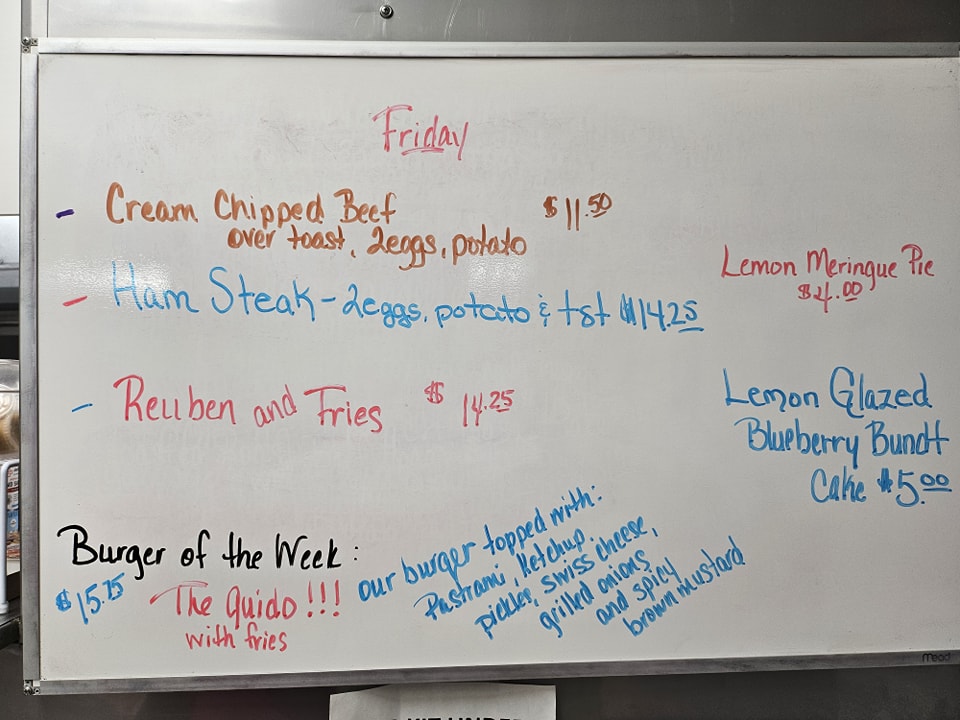 Friday
- Cream Chipped Beef $11.50
over toast, 2eggs, potato
- Ham Steak - 2eggs, potato & tst $14.25
- Reuben and Fries $14.25
Lemon Meringue Pie
$4.00
Lemon Glazed
Blueberry Bundt
Cake $5.00
Burger of the Week:
$15.75
- The Guido!!!
with fries
our burger topped with:
Pastrami, Ketchup,
pickles, swiss cheese,
grilled onions
and spicy
brown mustard
Mead